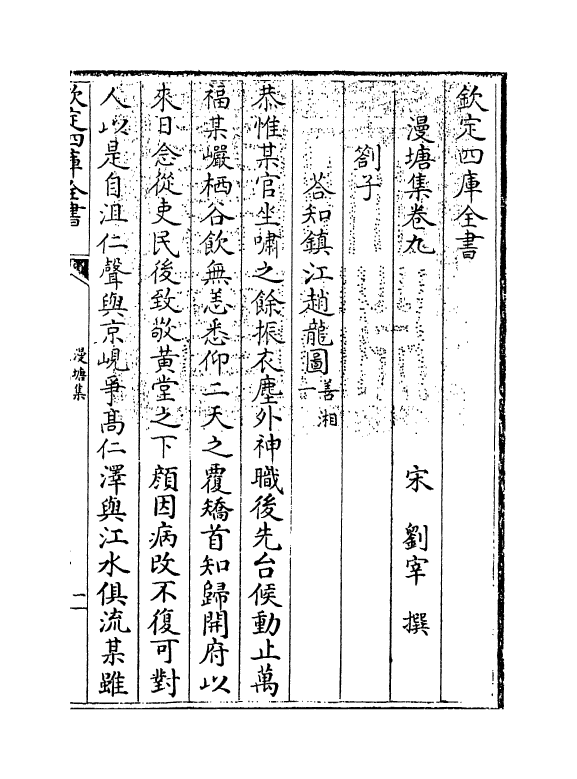 欽定四庫全書
漫塘集卷九
宋 劉宰 撰
劄子
荅知鎮江趙龍圖善湘一
恭惟某官坐嘯之餘振衣塵外神職後先台候動止萬
福某巖栖谷飲無恙悉仰二天之覆矯首知歸開府以
來日念從吏民後致敬黄堂之下顔因病改不復可對
人以是自沮仁聲與京峴爭髙仁澤與江水俱流某雖
欽定四庫全書
漫塘集